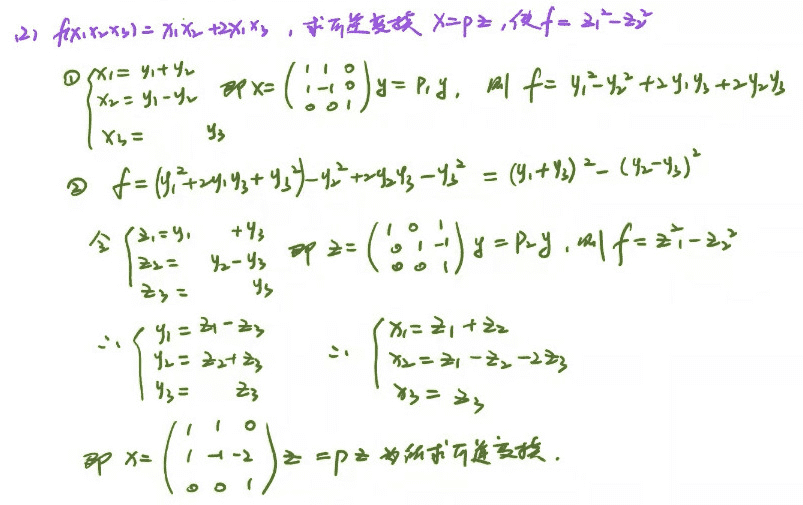 (2) f(x₁x₂x₃) = x₁x₂ + 2x₁x₃ , 求可逆变换 x = pz , 使 f = z₁² - z₂²
① { x₁ = y₁ + y₂
x₂ = y₁ - y₂
x₃ = y₃
即 x = ( 1 1 0
1 -1 0
0 0 1 ) y = P₁y , 则 f = y₁² - y₂² + 2y₁y₃ + 2y₂y₃
② f = (y₁² + 2y₁y₃ + y₃²) - y₂² + 2y₂y₃ - y₃² = (y₁ + y₃)² - (y₂ - y₃)²
令 { z₁ = y₁ + y₃
z₂ = y₂ - y₃
z₃ = y₃
即 z = ( 1 0 1
0 1 -1
0 0 1 ) y = P₂y , 则 f = z₁² - z₂²
∴ { y₁ = z₁ - z₃
y₂ = z₂ + z₃
y₃ = z₃
∴ { x₁ = z₁ + z₂
x₂ = z₁ - z₂ - 2z₃
x₃ = z₃
即 x = ( 1 1 0
1 -1 -2
0 0 1 ) z = pz 为所求可逆变换 .